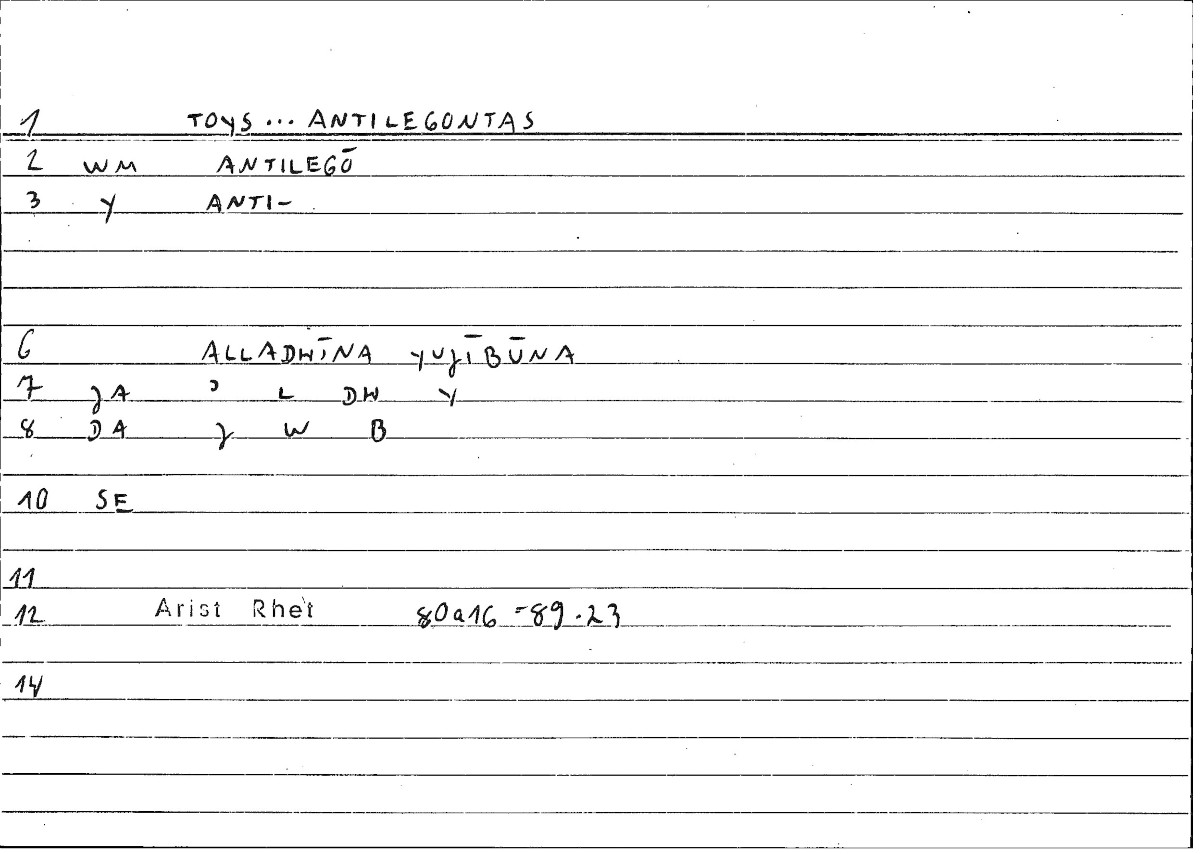 1 TOYS... ANTILEGONTAS
2 WM ANTILEGŌ
3 Y ANTI-
6 ALLADHĪNA YUJĪBŪNA
7 JA ʾ L DH Y
8 DA J W B
10 SE
11
12 Arist Rhet 80a16 = 89.23
14